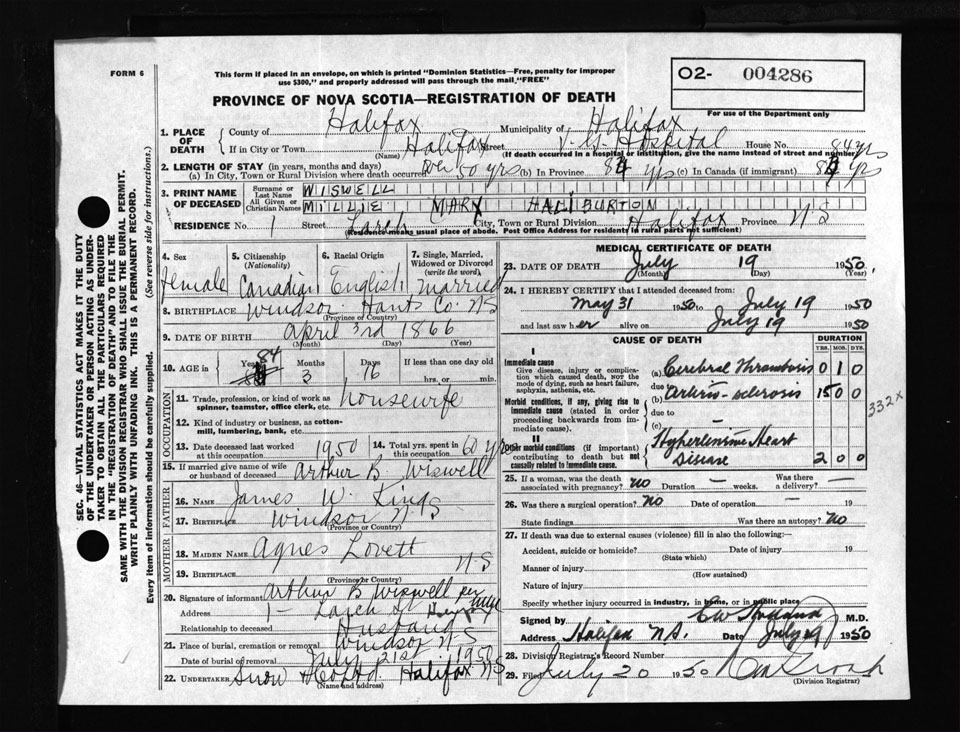 FORM 6
This form if placed in an envelope, on which is printed "Dominion Statistics—Free, penalty for improper
use $300," and properly addressed will pass through the mail, "FREE"
O2- 004286
For use of the Department only
PROVINCE OF NOVA SCOTIA—REGISTRATION OF DEATH
SEC. 46—VITAL STATISTICS ACT MAKES IT THE DUTY
OF THE UNDERTAKER OR PERSON ACTING AS UNDER-
TAKER TO OBTAIN ALL THE PARTICULARS REQUIRED
IN THE "REGISTRATION OF DEATH" AND TO FILE THE
SAME WITH THE DIVISION REGISTRAR WHO SHALL ISSUE THE BURIAL PERMIT.
WRITE PLAINLY WITH UNFADING INK. THIS IS A PERMANENT RECORD.
Every item of information should be carefully supplied. (See reverse side for instructions.)
1. PLACE OF DEATH
County of Halifax Municipality of Halifax
If in City or Town Halifax Street V. G. Hospital House No.
(Name) (If death occurred in a hospital or institution, give the name instead of street and number)
2. LENGTH OF STAY (in years, months and days) 84 yrs
(a) In City, Town or Rural Division where death occurred Over 50 yrs (b) In Province 84 yrs (c) In Canada (if immigrant) 84 yrs
3. PRINT NAME OF DECEASED
Surname or Last Name WISWELL
All Given or Christian Names MILLIE MARY HALIBURTON
RESIDENCE No. 1 Street Larch City, Town or Rural Division Halifax Province N S
(Residence means usual place of abode. Post Office Address for residents in rural parts not sufficient)
4. Sex female
5. Citizenship (Nationality) Canadian
6. Racial Origin English
7. Single, Married, Widowed or Divorced (write the word) married
8. BIRTHPLACE Windsor Hants Co. N S
(Province or Country)
9. DATE OF BIRTH April 3rd 1866
(Month) (Day) (Year)
10. AGE in Years 84 Months 3 Days 16 If less than one day old hrs. or min.
OCCUPATION
11. Trade, profession, or kind of work as
spinner, teamster, office clerk, etc. housewife
12. Kind of industry or business, as cotton-
mill, lumbering, bank, etc.
13. Date deceased last worked at this occupation 1950
14. Total yrs. spent in this occupation 60 yrs
15. If married give name of wife or husband of deceased Arthur B Wiswell
FATHER
16. NAME James W. King
17. Birthplace Windsor N S
(Province or Country)
MOTHER
18. MAIDEN NAME Agnes Lovett
19. BIRTHPLACE N.S
(Province or Country)
20. Signature of informant Arthur B Wiswell per
Address 1 - Larch St
Relationship to deceased Husband
21. Place of burial, cremation or removal Windsor N S
Date of burial or removal July 21st 1950
22. UNDERTAKER Snow & Co Ltd. Halifax N S
(Name and address)
MEDICAL CERTIFICATE OF DEATH
23. DATE OF DEATH July 19 1950
(Month) (Day) (Year)
24. I HEREBY CERTIFY that I attended deceased from:
May 31 1950 to July 19 1950
and last saw her alive on July 19 1950
CAUSE OF DEATH
DURATION
YRS. MOS. DYS.
I
Immediate cause
Give disease, injury or complica-
tion which caused death, not the
mode of dying, such as heart failure,
asphyxia, asthenia, etc.
(a) Cerebral Thrombosis 0 1 0
due to
(b) Arterio-sclerosis 15 0 0
332X
Morbid conditions, if any, giving rise to
immediate cause (stated in order
proceeding backwards from im-
mediate cause).
due to
(c) —
II
Other morbid conditions (if important)
contributing to death but not
causally related to immediate cause.
Hypertensive Heart
Disease 2 0 0
25. If a woman, was the death
associated with pregnancy? no Duration — weeks. Was there a delivery? —
26. Was there a surgical operation? no Date of operation — 19
State findings Was there an autopsy? no
27. If death was due to external causes (violence) fill in also the following:—
Accident, suicide or homicide? Date of injury 19
(State which)
Manner of injury
(How sustained)
Nature of injury
Specify whether injury occurred in industry, in home, or in public place
Signed by M.D.
Address Halifax N.S. Date July 19 1950
28. Division Registrar's Record Number
29. Filed July 20 1950
(Division Registrar)